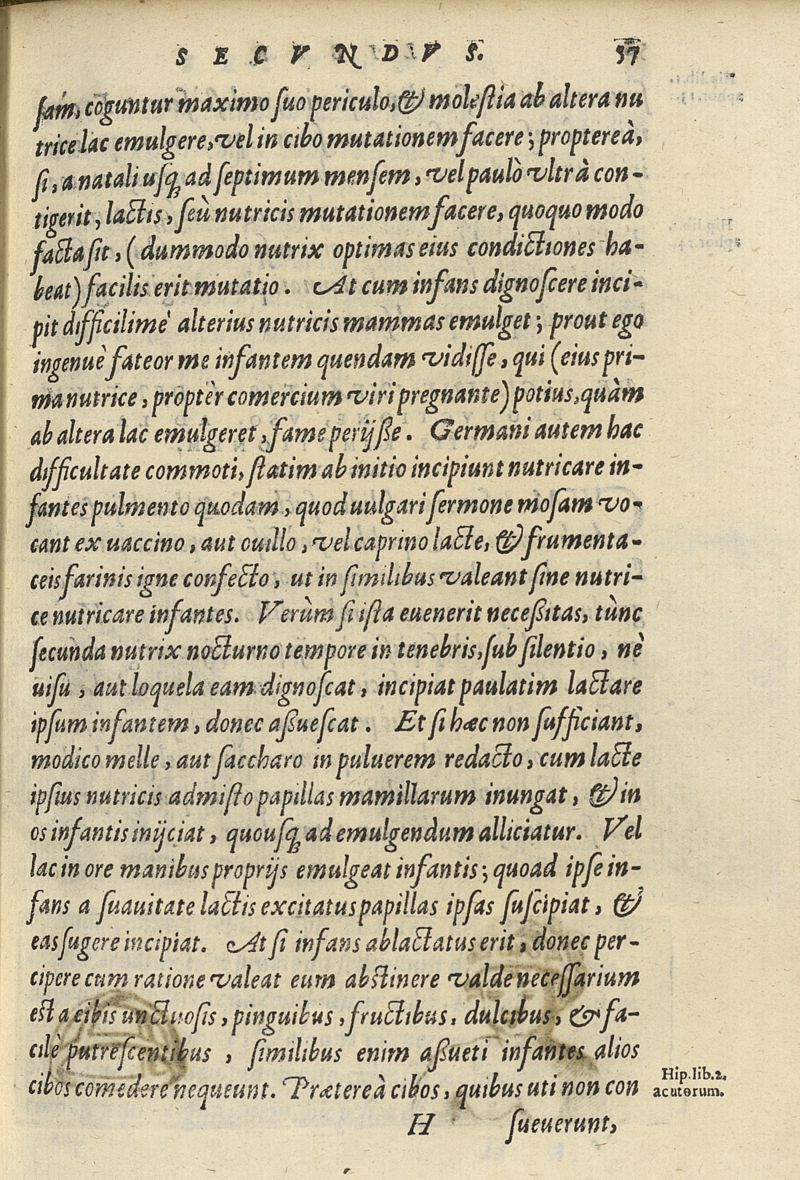 SECVNDVS. 57
sam, coguntur maximo suo periculo, & molestia ab altera nu
trice lac emulgere, vel in cibo mutationem facere; proptereà,
si, a natali usq; ad septimum mensem, vel paulò vltrà con-
tigerit, lactis, seù nutricis mutationem facere, quoquo modo
facta sit, (dummodo nutrix optimas eius condictiones ha-
beat) facilis erit mutatio. At cum infans dignoscere inci-
pit difficilimè alterius nutricis mammas emulget; prout ego
ingenuè fateor me infantem quendam vidisse, qui (eius pri-
ma nutrice, proptèr comercium viri pregnante) potius, quàm
ab altera lac emulgeret, fame perijsse. Germani autem hac
difficultate commoti, statim ab initio incipiunt nutricare in-
fantes pulmento quodam, quod uulgari sermone mosam vo-
cant ex uaccino, aut ouillo, vel caprino lacte, & frumenta-
ceis farinis igne confecto, ut in similibus valeant sine nutri-
ce nutricare infantes. Verùm si ista euenerit necessitas, tùnc
secunda nutrix nocturno tempore in tenebris, sub silentio, nè
uisu, aut loquela eam dignoscat, incipiat paulatim lactare
ipsum infantem, donec assuescat. Et si hæc non sufficiant,
modico melle, aut saccharo in puluerem redacto, cum lacte
ipsius nutricis admisto papillas mamillarum inungat, & in
os infantis inijciat, quousq; ad emulgendum alliciatur. Vel
lac in ore manibus proprijs emulgeat infantis; quoad ipse in-
fans a suauitate lactis excitatus papillas ipsas suscipiat, &
eas sugere incipiat. At si infans ablactatus erit, donec per-
cipere cum ratione valeat eum abstinere valde necessarium
est a cibis unctuosis, pinguibus, fructibus, dulcibus, & fa-
cilè putrescentibus, similibus enim assueti infantes alios
cibos comedere nequeunt. Prætereà cibos, quibus uti non con
Hip. lib. 2.
acutorum.
H sueuerunt,